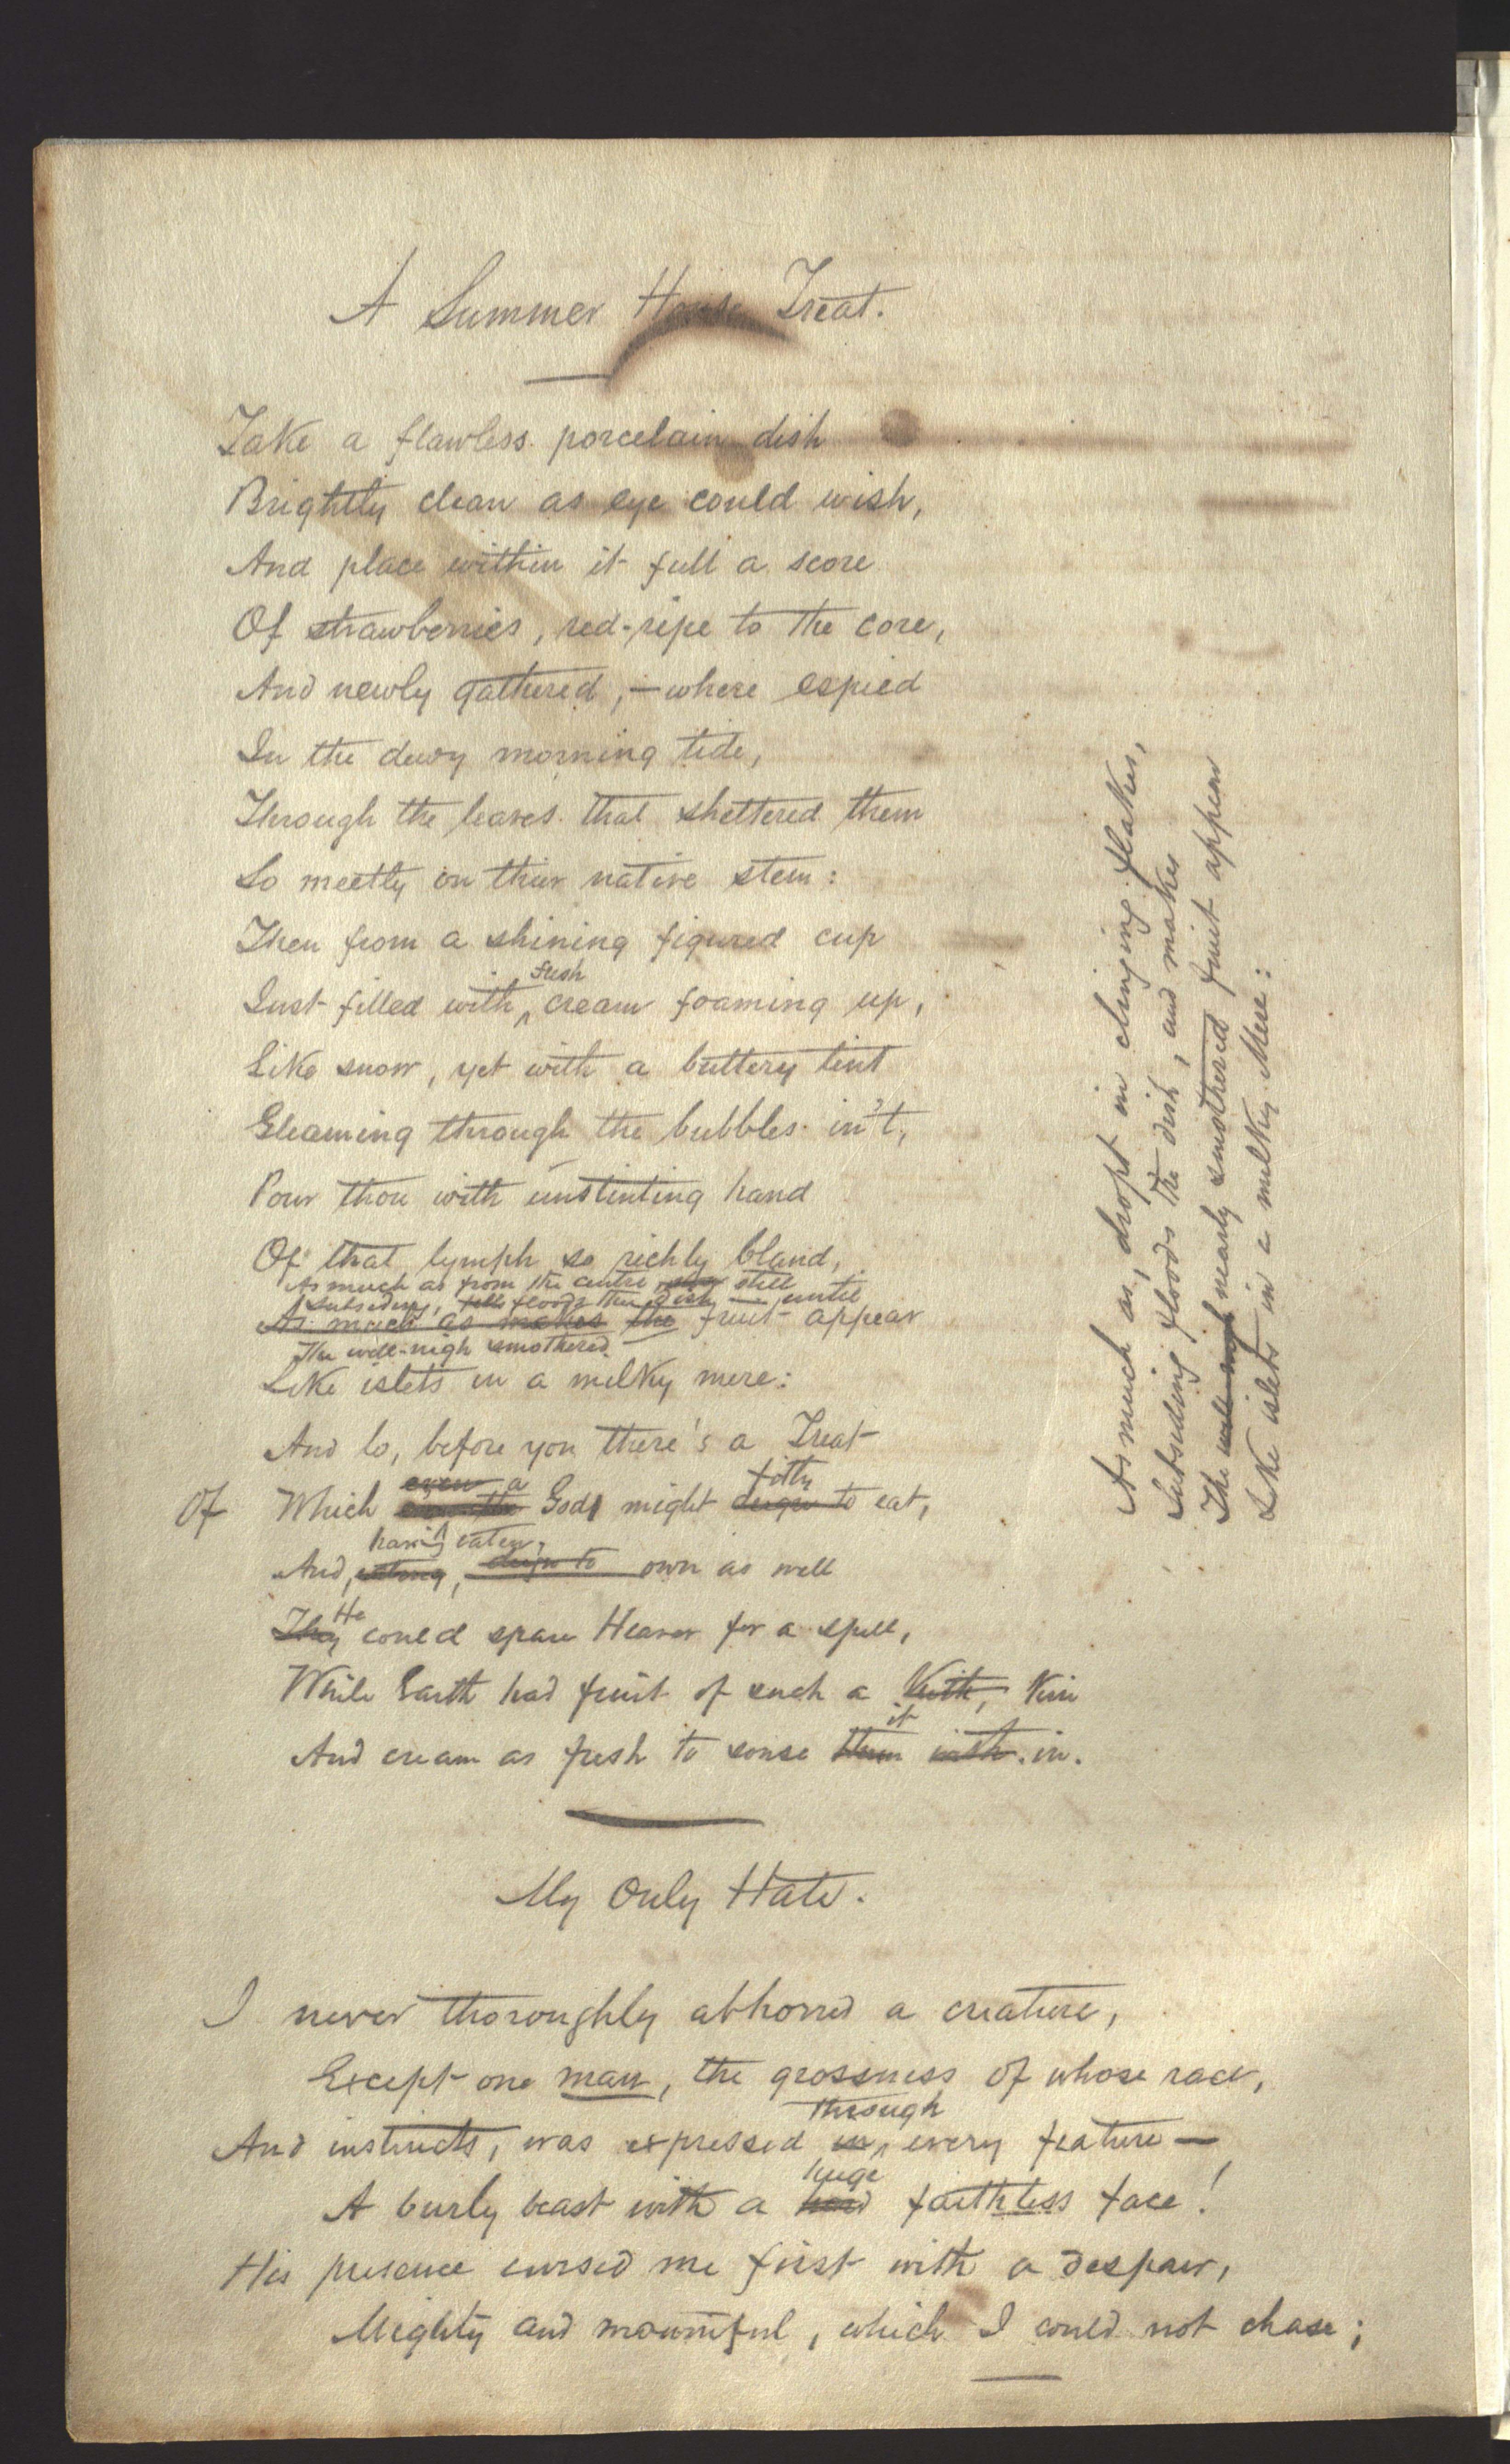 A Summer House Treat.
Take a flawless porcelain dish
Brightly clean as eye could wish,
And place within it full a score
Of strawberries, red-ripe to the core,
And newly gathered, — where espied
In the dewy morning tide,
Through the leaves that sheltered them
So meetly on their native stem:
Then from a shining figured cup
fresh
Just filled with cream foaming up,
Like snow, yet with a buttery tint
Gleaming through the bubbles in't,
Pour thou with unstinting hand
Of that lymph so richly bland,
As much as from the centre still
Subsiding, floods the dish — until
As much as makes the fruit appear
The well-nigh smothered
Like islets in a milky mere:
And lo, before you there's a Treat
even a fitly
Of Which Gods might deign to eat,
having eaten,
And, eating, deign to own as well
He
They could spare Heaven for a spell,
While Earth had fruit of such a Kith, Kin
it
And cream as fresh to souse them with. in.
My Only Hate.
I never thoroughly abhorred a creature,
Except one man, the grossness of whose race,
through
And instincts, was expressed in every feature —
huge
A burly beast with a faithless face!
His presence cursed me first with a despair,
Mighty and mournful, which I could not chase;
As much as, dropt in clinging flakes,
Subsiding floods the dish, and makes
The well-nigh nearly smothered fruit appear
Like islets in a milky Mere: